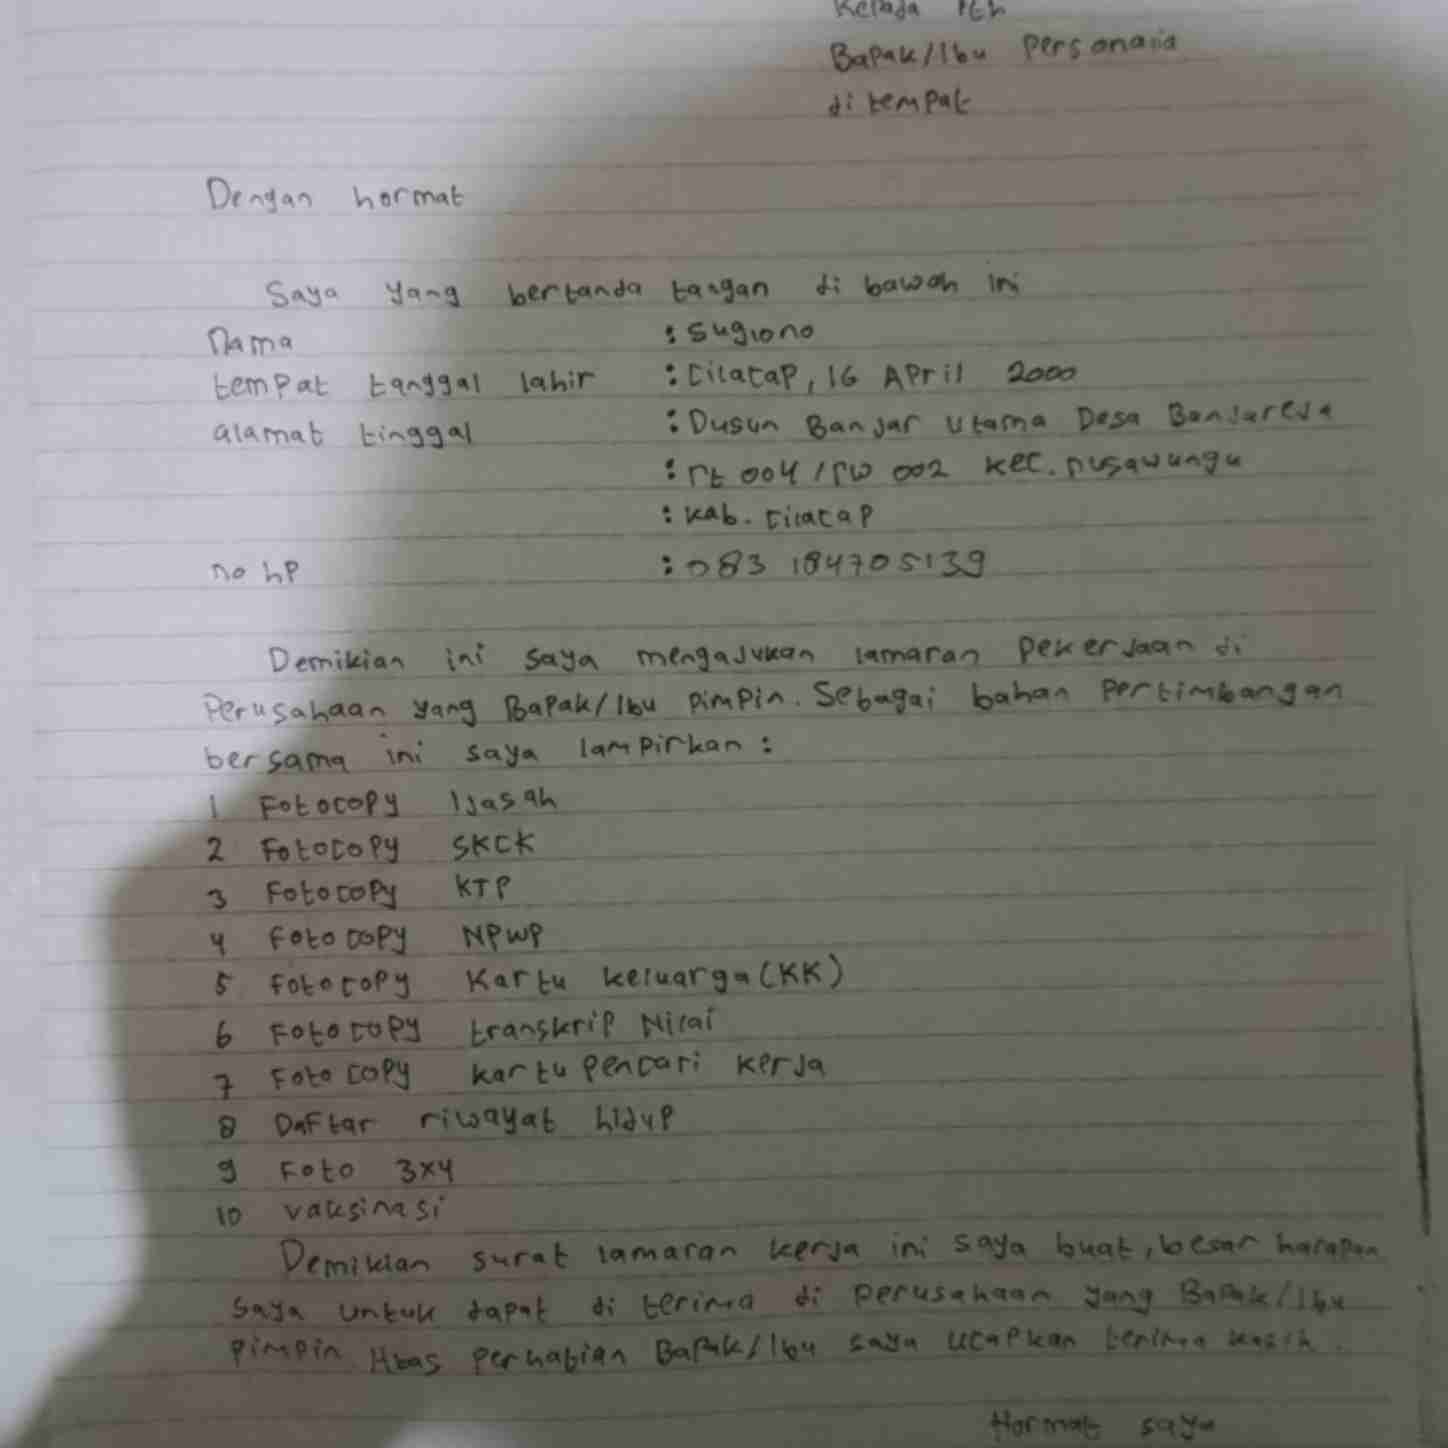 Kepada Yth
Bapak/Ibu Personaria
di tempat
Dengan hormat
Saya yang bertanda tangan di bawah ini
Nama : Sugiono
tempat tanggal lahir : Cilacap, 16 April 2000
alamat tinggal : Dusun Banjar Utama Desa Banjareja
: rt 004 / rw 002 kec. nusawungu
: kab. Cilacap
no hp : 083 184705139
Demikian ini saya mengajukan lamaran pekerjaan di
Perusahaan yang Bapak/Ibu pimpin. Sebagai bahan pertimbangan
bersama ini saya lampirkan :
1 Fotocopy Ijasah
2 Fotocopy SKCK
3 Fotocopy KTP
4 Fotocopy NPWP
5 Fotocopy Kartu keluarga (KK)
6 Fotocopy transkrip Nilai
7 Fotocopy kartu pencari kerja
8 Daftar riwayat hidup
9 Foto 3x4
10 vaksinasi
Demikian surat lamaran kerja ini saya buat, besar harapan
saya untuk dapat di terima di perusahaan yang Bapak/Ibu
pimpin Atas perhatian Bapak/Ibu saya ucapkan terima kasih.
Hormat saya